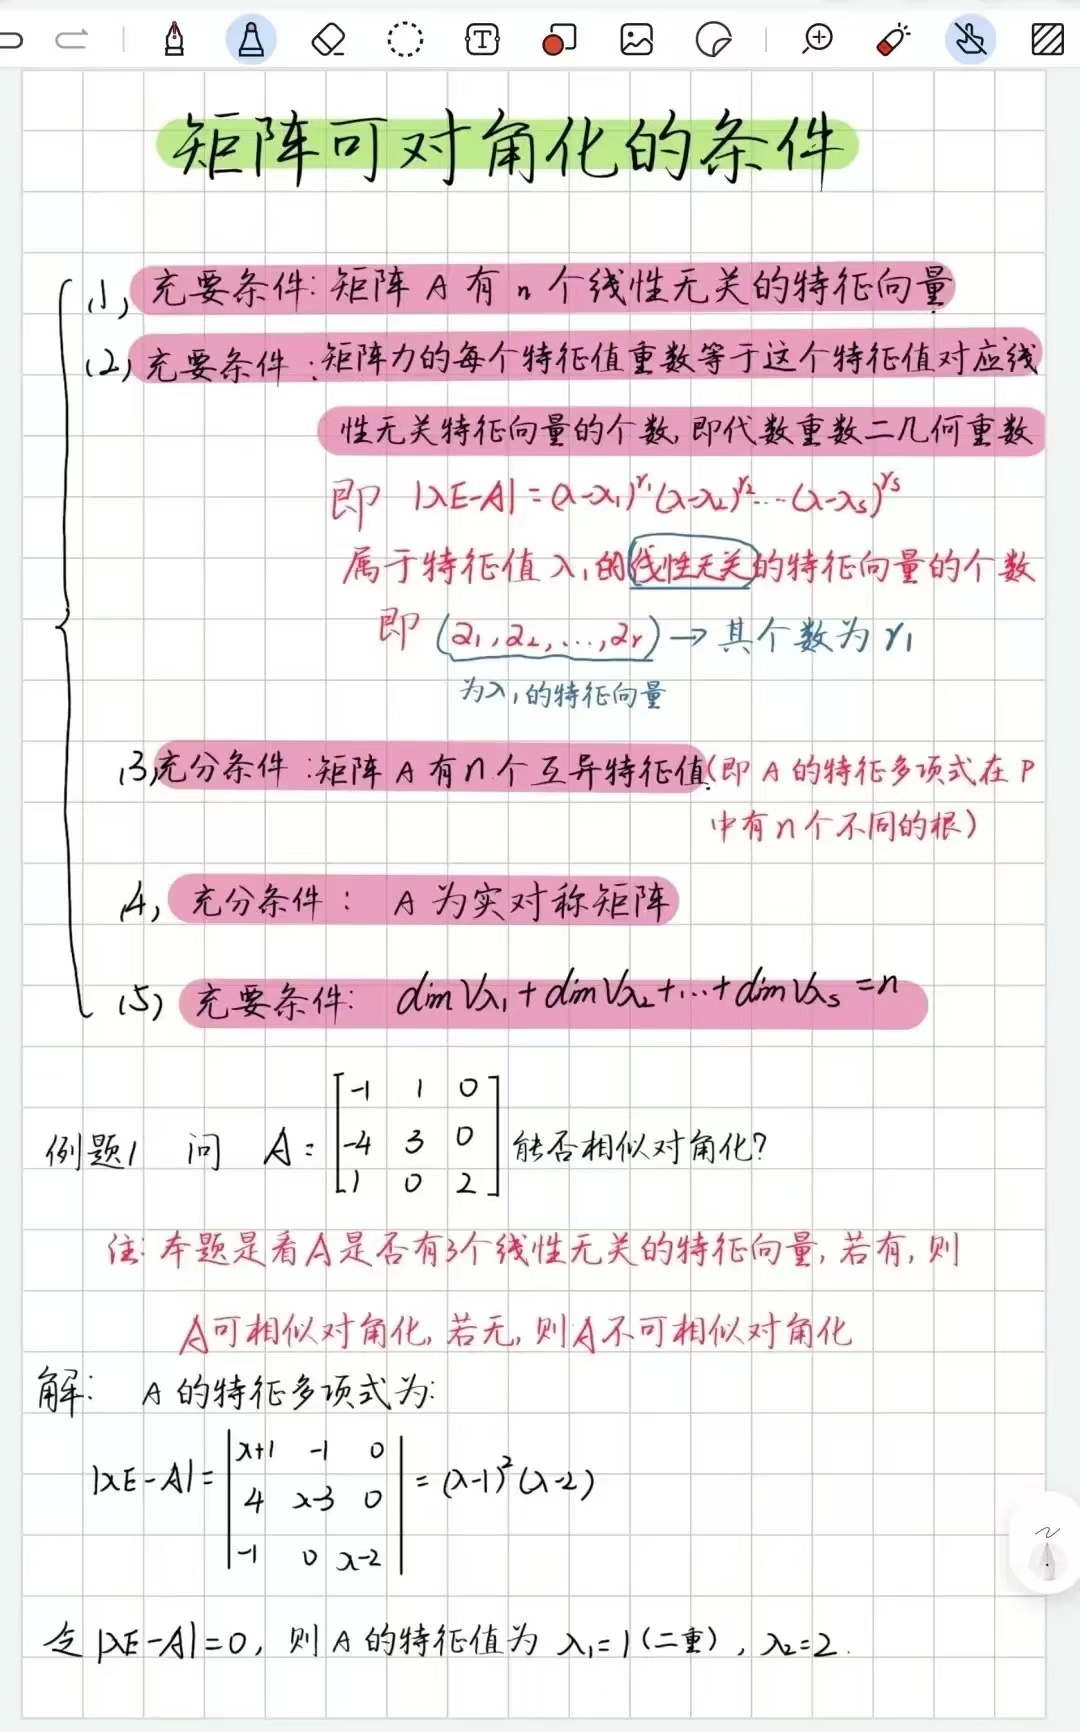 矩阵可对角化的条件
(1) 充要条件: 矩阵 A 有 n 个线性无关的特征向量
(2) 充要条件: 矩阵力的每个特征值重数等于这个特征值对应线
性无关特征向量的个数, 即代数重数二几何重数
即 |λE-A| = (λ-λ₁)^r₁ (λ-λ₂)^r₂ … (λ-λs)^rs
属于特征值 λ₁ 的线性无关的特征向量的个数
即 (2₁, 2₂, …, 2r) → 其个数为 r₁
为 λ₁ 的特征向量
(3) 充分条件: 矩阵 A 有 n 个互异特征值 (即 A 的特征多项式在 P
中有 n 个不同的根)
(4) 充分条件: A 为实对称矩阵
(5) 充要条件: dim Vλ₁ + dim Vλ₂ + … + dim Vλs = n
-1 1 0
例题1 问 A = -4 3 0 能否相似对角化?
1 0 2
注: 本题是看A是否有3个线性无关的特征向量, 若有, 则
A可相似对角化, 若无, 则A不可相似对角化
解: A 的特征多项式为:
λ+1 -1 0
|λE-A| = 4 λ-3 0 = (λ-1)² (λ-2)
-1 0 λ-2
令 |λE-A| = 0, 则 A 的特征值为 λ₁ = 1 (二重), λ₂ = 2.